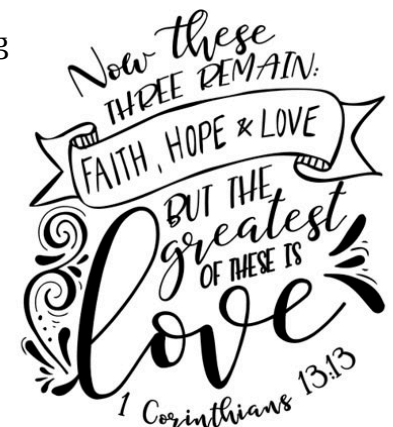 g
Now these
THREE REMAIN:
FAITH, HOPE & LOVE
BUT THE
greatest
OF THESE IS
love
1 Corinthians 13:13